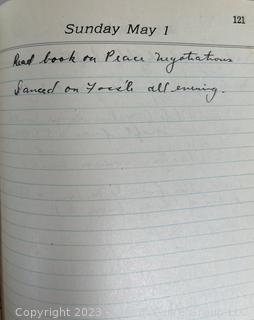 121
Sunday May 1
Read book on Peace Negotiations
Danced on all evening.
Copyright 2023